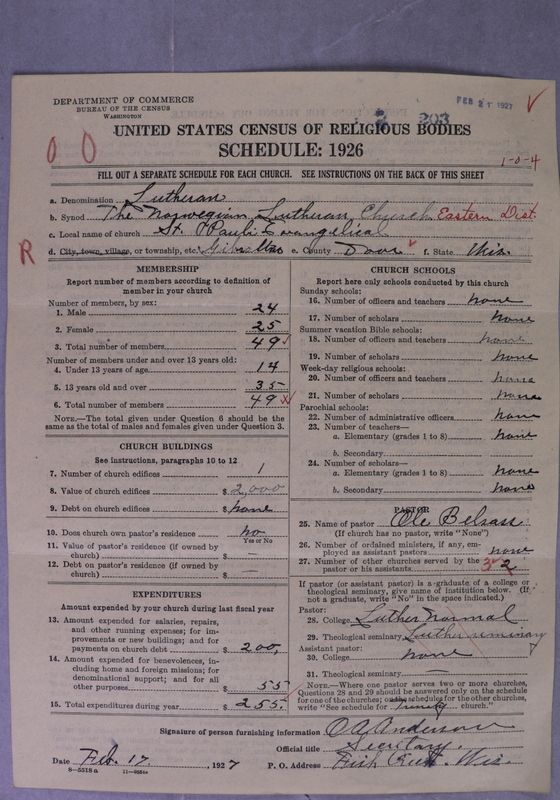 DEPARTMENT OF COMMERCE
BUREAU OF THE CENSUS
WASHINGTON
FEB 21 1927
203
UNITED STATES CENSUS OF RELIGIOUS BODIES
SCHEDULE: 1926
1-0-4
FILL OUT A SEPARATE SCHEDULE FOR EACH CHURCH. SEE INSTRUCTIONS ON THE BACK OF THIS SHEET
a. Denomination Lutheran
b. Synod The Norwegian Lutheran Church Eastern Dist.
c. Local name of church St. Pauli Evangelical
R
d. City, town, village, or township, etc. Gibraltar e. County Door f. State Wis.
MEMBERSHIP
Report number of members according to definition of member in your church
Number of members, by sex:
1. Male 24
2. Female 25
3. Total number of members 49
Number of members under and over 13 years old:
4. Under 13 years of age 14
5. 13 years old and over 35
6. Total number of members 49
NOTE.—The total given under Question 6 should be the same as the total of males and females given under Question 3.
CHURCH BUILDINGS
See instructions, paragraphs 10 to 12
7. Number of church edifices 1
8. Value of church edifices $ 2,000
9. Debt on church edifices $ none
10. Does church own pastor's residence no
Yes or No
11. Value of pastor's residence (if owned by church) $ —
12. Debt on pastor's residence (if owned by church) $ —
EXPENDITURES
Amount expended by your church during last fiscal year
13. Amount expended for salaries, repairs, and other running expenses; for improvements or new buildings; and for payments on church debt $ 200,
14. Amount expended for benevolences, including home and foreign missions; for denominational support; and for all other purposes $ 55
15. Total expenditures during year $ 255
CHURCH SCHOOLS
Report here only schools conducted by this church
Sunday schools:
16. Number of officers and teachers none
17. Number of scholars none
Summer vacation Bible schools:
18. Number of officers and teachers none
19. Number of scholars none
Week-day religious schools:
20. Number of officers and teachers none
21. Number of scholars none
Parochial schools:
22. Number of administrative officers none
23. Number of teachers—
a. Elementary (grades 1 to 8) none
b. Secondary
24. Number of scholars—
a. Elementary (grades 1 to 8) none
b. Secondary none
PASTOR
25. Name of pastor Ole
(If church has no pastor, write "None")
26. Number of ordained ministers, if any, employed as assistant pastors none
27. Number of other churches served by the pastor or his assistants 2
If pastor (or assistant pastor) is a graduate of a college or theological seminary, give name of institution below. (If not a graduate, write "No" in the space indicated.)
Pastor:
28. College Luther Normal
29. Theological seminary Luther seminary
Assistant pastor:
30. College none
31. Theological seminary —
NOTE.—Where one pastor serves two or more churches, Questions 28 and 29 should be answered only on the schedule for one of the churches; on the schedules for the other churches, write "See schedule for Trinity church."
Signature of person furnishing information O A Anderson
Official title Secretary.
Date Feb. 17, 1927 P. O. Address Fish Creek Wis.